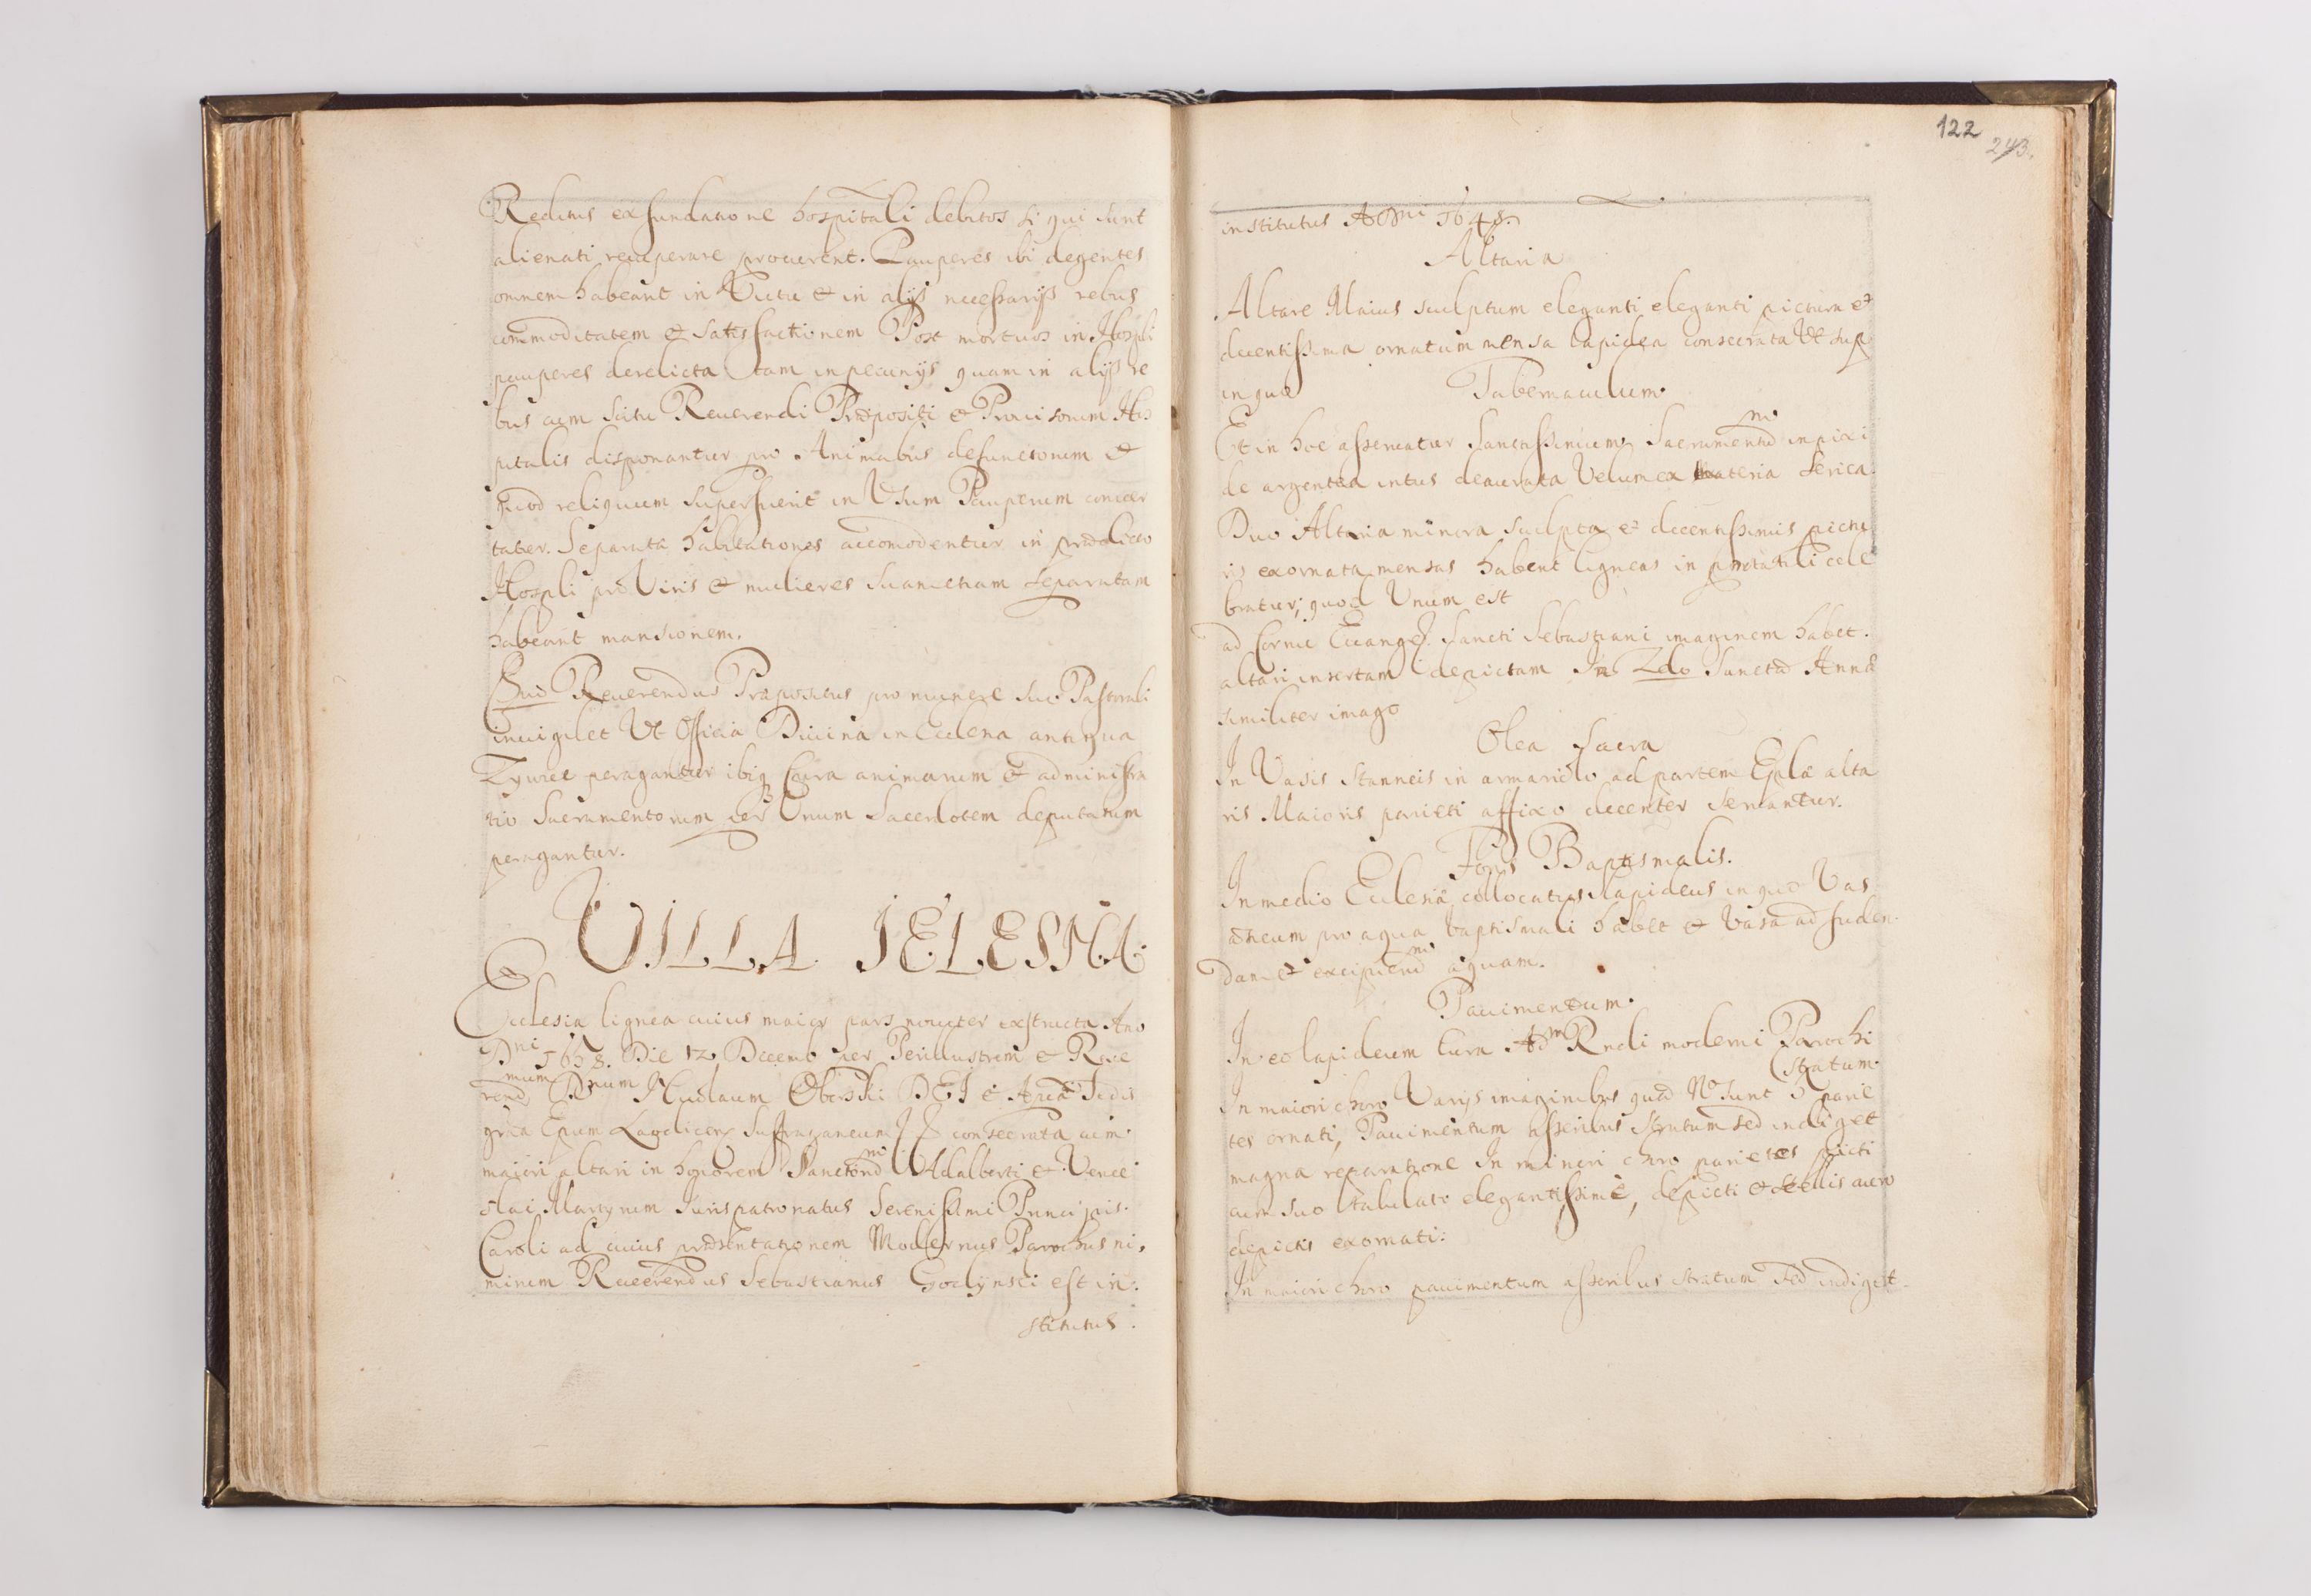 Reditus ex fundatione hospitali debitos si qui sunt
alienati recuperare procurent. Pauperes ibi degentes
omnem habeant in Victu & in alijs necessarijs rebus
commoditatem & satisfactionem Post mortuos in Hospli
pauperes derelicta tam in pecunijs quam in alijs re
bus cum scitu Reuerendi Præpositi & Prouisorum Hos
pitalis disponantur pro Animabus defunctorum &
quod reliquum superfuerit in Vsum Pauperum conuer
tatur. Separatæ habitationes accomodentur in prædicto
Hospli pro Viris & mulieres suam etiam separatam
habeant mansionem.
Reuerendus Præpositus pro munere suo Pastorali
inuigilet Vt Officia Diuina in Ecclesia antiqua
Zywiec peragantur ibiq Cura animarum & administra
tio Sacramentorum per Vnum Sacerdotem deputatum
peragantur.
VILLA IELESNA.
Ecclesia lignea cuius maior pars nouiter exstructa Ano
Dni Die 12 Decemb per Perillustrem & Reue
rend mum Dnum Nicolaum Oberski DEI & Aplcæ Sedis
grãa Epum Laodicen Suffraganeum consecrata cum
maiori altari in honorem Sanctorũ Adalberti & Vence
slai Martyrum Iurispatronatus Serenissimi Principis
Caroli ad cuius præsentationem Modernus Parochus ni
mirum Reuerendus Sebastianus Godÿnski est in:
stitutus.
122
243.
institutus A Dni 1648.
Altaria
Altare Maius sculptum eleganti eleganti pictura &
decentissima ornatum mensa lapidea consecrata Vt sup
in quo Tabernaculum.
Et in hoc asseruatur Sanctissimum Sacramentũ in pixi
de argentea intus deaurata Velum ex materia serica.
Duo Altaria minora sculpta & decentissimis pictu
ris exornata mensas habent ligneas in portatili cele
bratur, quod Vnum est
ad Cornu Euangel. Sancti Sebastiani imaginem habet.
altari insertam depictam In 2do Sanctæ Annæ
similiter imago
Olea Sacra
In Vasis Stanneis in armariolo ad partem Eplæ alta
ris Maioris parieti affixo decenter seruantur.
Fons Baptismalis.
In medio Ecclesiæ collocatus lapideus in quo Vas
æneum pro aqua baptismali habet & Vasa ad funden
dam et excipiend aquam.
Pauimentum.
In eo lapideum cura Adm Rndi moderni Parochi
stratum.
In maiori choro Varijs imaginibus No sunt parie
tes ornati, Pauimentum asseribus stratum sed indiget
magna reparatione In minori choro parietes picti
cum suo tabulato elegantissimè, depicti & stellis auro
depictis exornati:
In maiori choro pauimentum asseribus stratum sed indiget